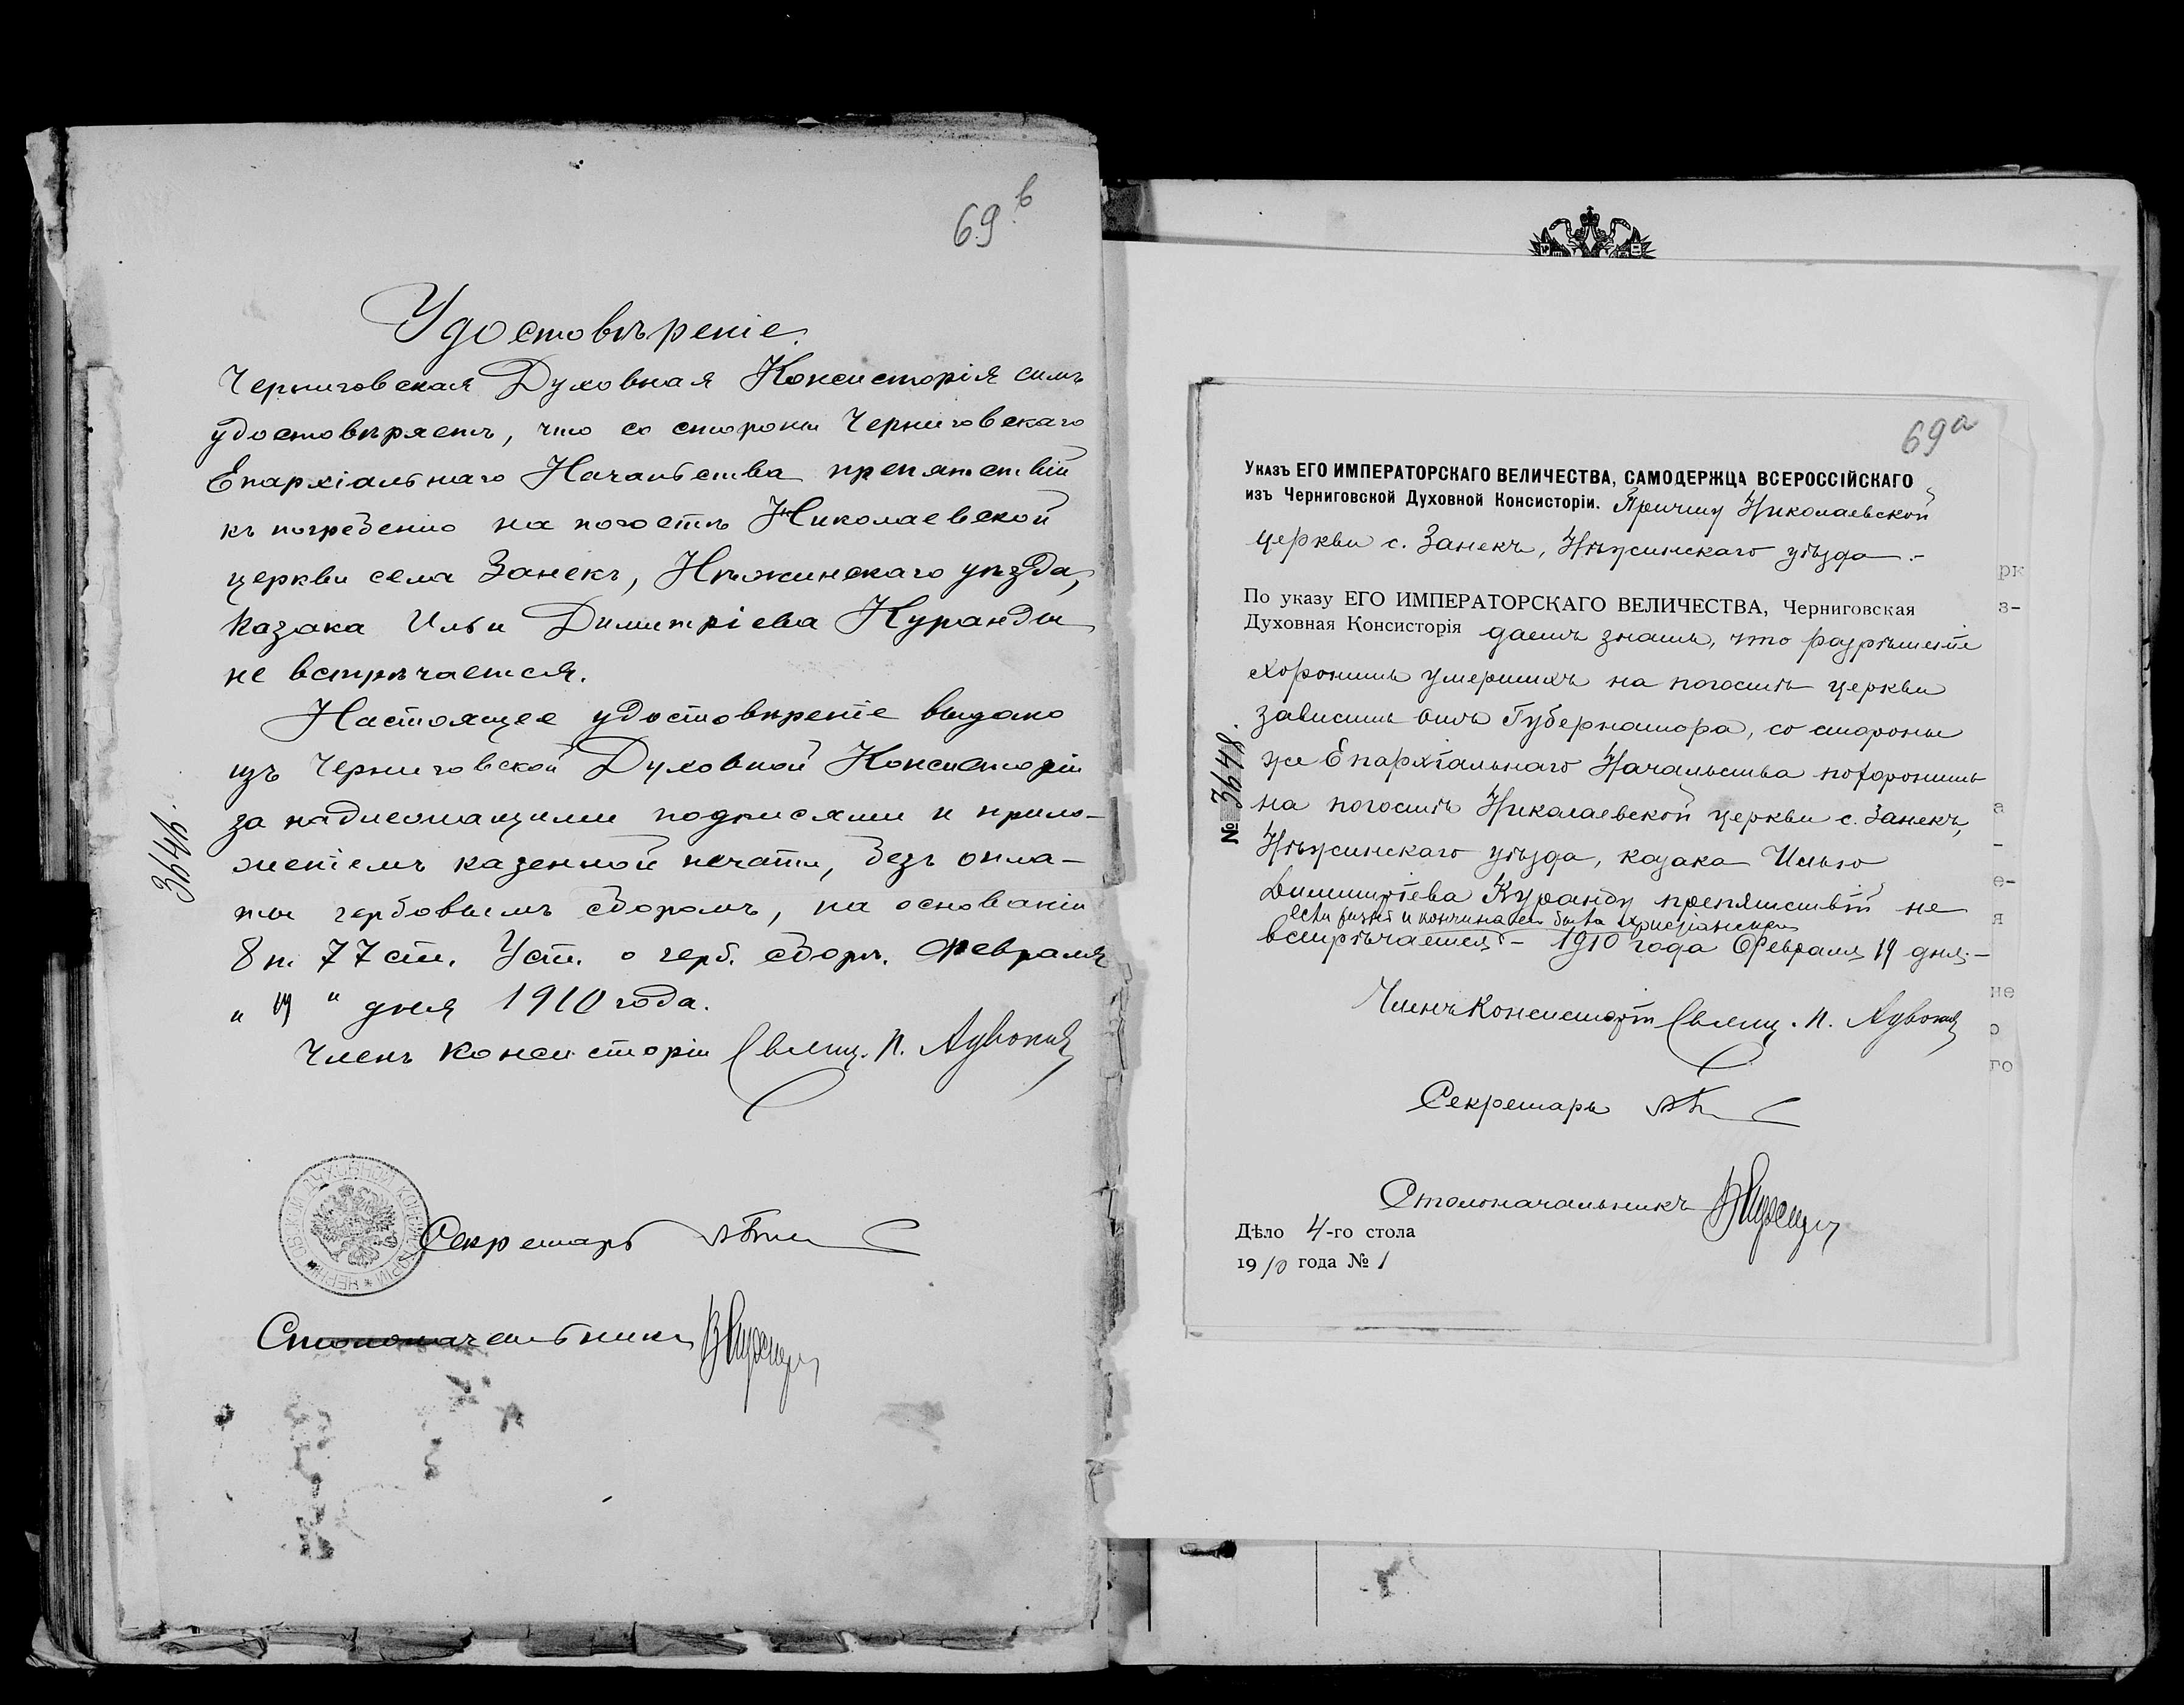 69 в
Удостовѣреніе.
Черниговская Духовная Консисторія симъ
удостовѣряетъ, что со стороны Черниговскаго
Епархіальнаго Начальства препятствій
къ погребенію на погостѣ Николаевской
церкви села Занекъ, Нѣжинскаго уѣзда,
казака Ильи Димитріева Куранды
не встрѣчается.
Настоящее удостовѣреніе выдано
изъ Черниговской Духовной Консисторіи
за надлежащими подписями и прило-
женіемъ казенной печати, безъ опла-
ты гербовымъ сборомъ, на основаніи
8 п. 77 ст. Уст. о герб. сборѣ. Февраля
„ 19 " дня 1910 года.
Членъ Консисторіи Свящ. П.
Секретарь
Столоначальникъ
69а
Указъ ЕГО ИМПЕРАТОРСКАГО ВЕЛИЧЕСТВА, САМОДЕРЖЦА ВСЕРОССІЙСКАГО
изъ Черниговской Духовной Консисторіи. Причту Николаевской
церкви с. Занекъ, Нѣжинскаго уѣзда.-
По указу ЕГО ИМПЕРАТОРСКАГО ВЕЛИЧЕСТВА, Черниговская
Духовная Консисторія даетъ знать, что разрѣшеніе
хоронить умершихъ на погостѣ церкви
зависитъ отъ Губернатора, со стороны
же Епархіальнаго Начальства похоронить
на погостѣ Николаевской церкви с. Занекъ,
Нѣжинскаго уѣзда, казака Илью
Димитріева Куранду препятствій не
если и кончина его была христіанская
встрѣчается.- 1910 года Февраля 19 дня.-
Членъ Консисторіи Свящ. П.
Секретарь
Столоначальникъ
Дѣло 4-го стола
1910 года № 1
№ 3648.